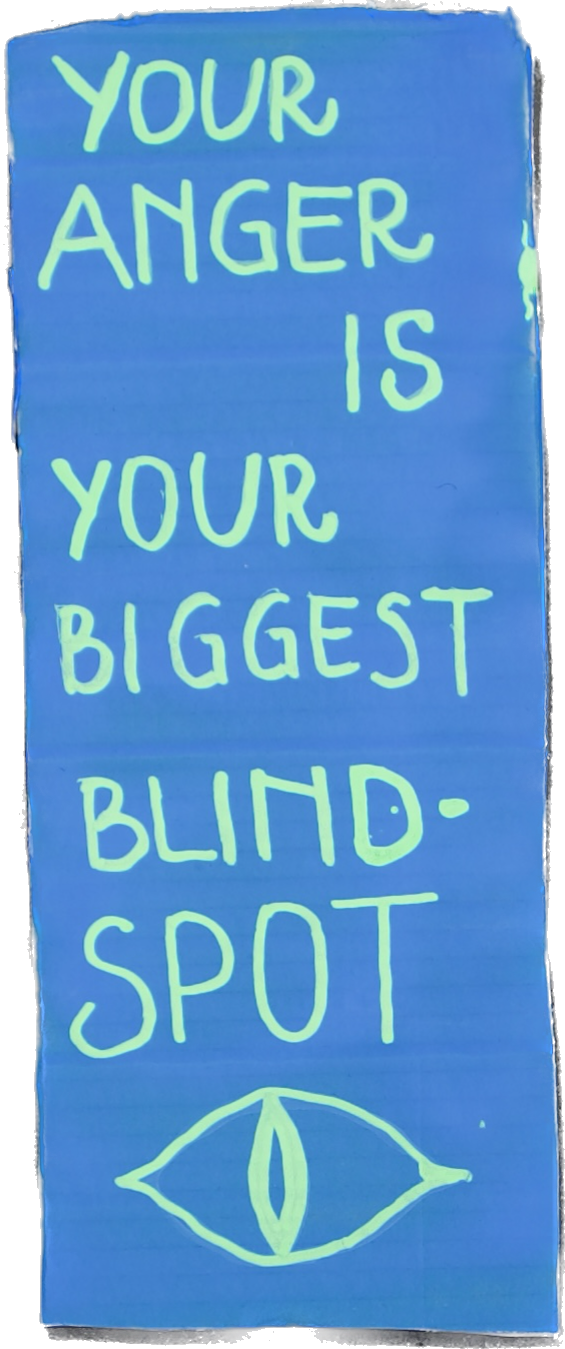 YOUR
ANGER
IS
YOUR
BIGGEST
BLIND-
SPOT